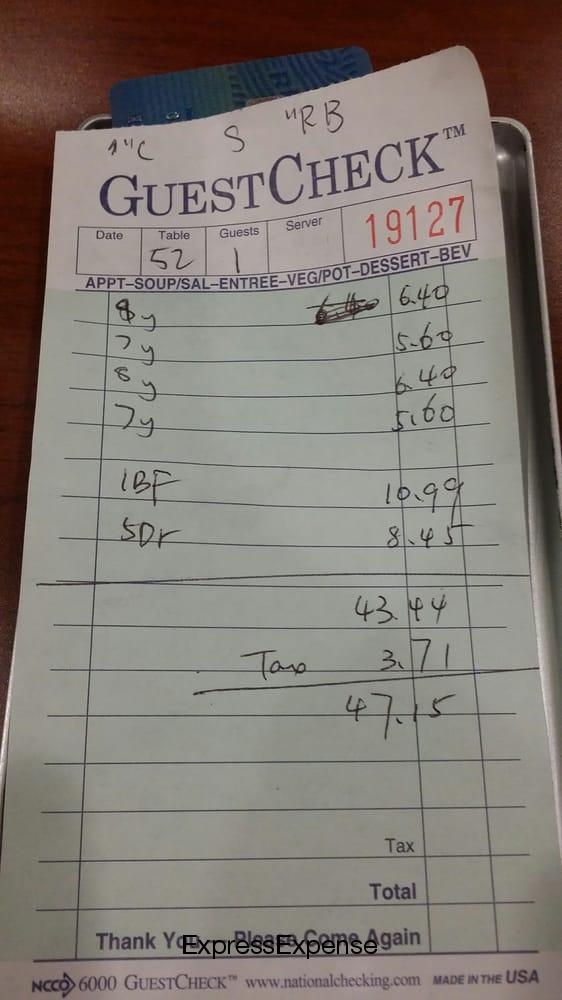 S "RB
GUESTCHECK™
Date Table Guests Server 19127
52 1
APPT–SOUP/SAL–ENTREE–VEG/POT–DESSERT–BEV
8y 6.40
7y 5.60
8y 6.40
7y 5.60
1BF 10.99
5Dr 8.45
43.44
Tax 3.71
47.15
Tax
Total
Thank You Please Come Again
ExpressExpense
NCCO 6000 GUESTCHECK™ www.nationalchecking.com MADE IN THE USA